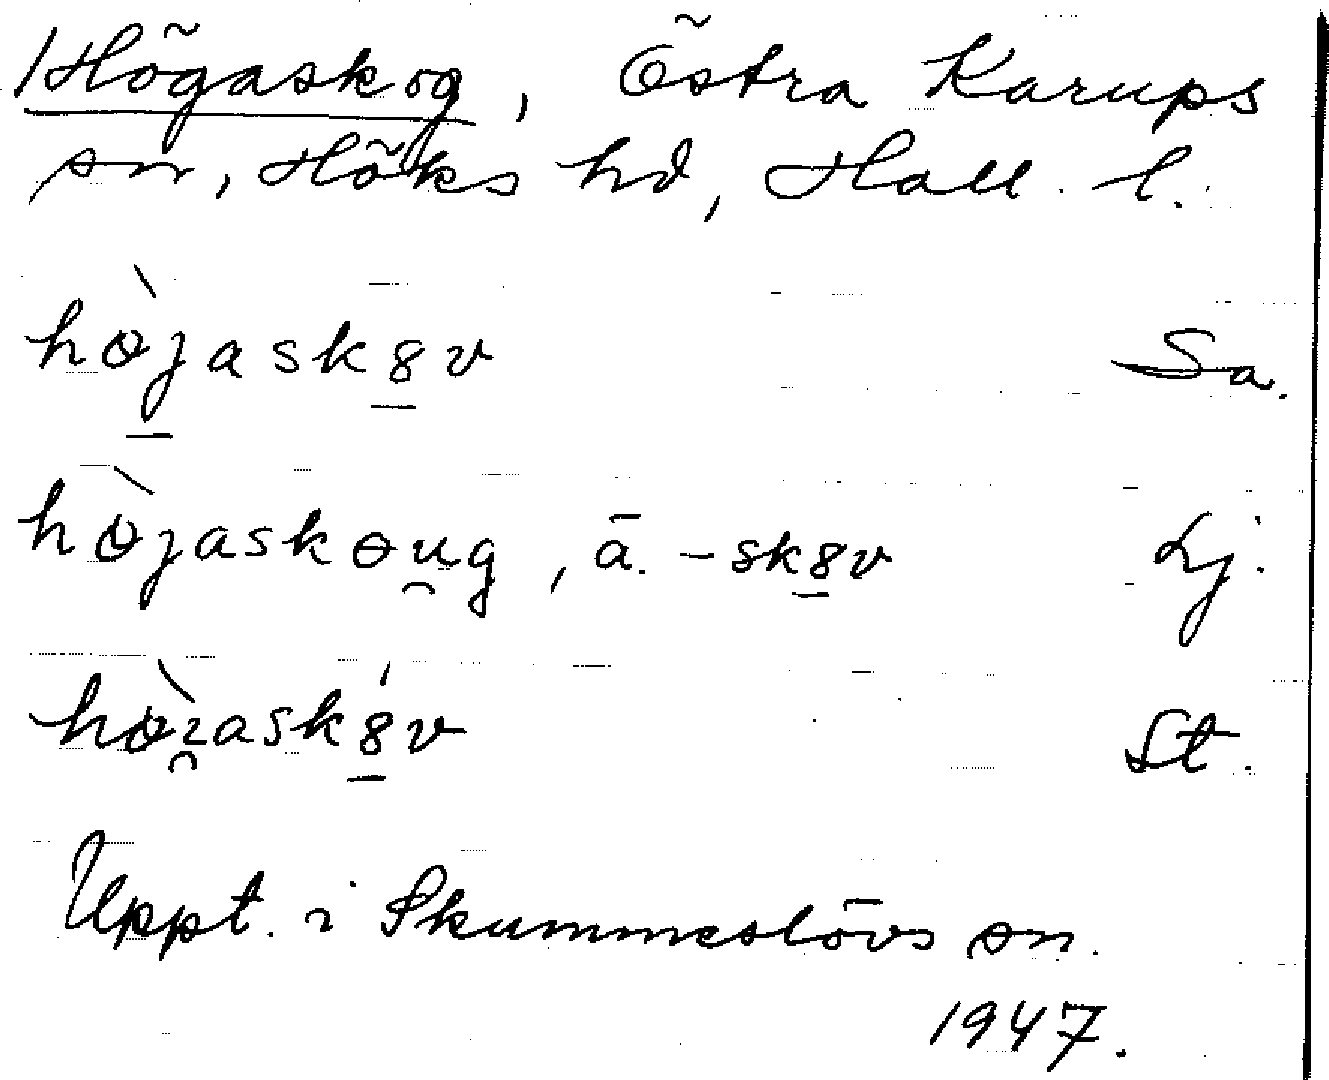 Högaskog, Östra Karups
sn, Höks hd, Hall. l.
hø̀jask8v Sa.
hø̀jaskɵu̯g, ä. -sk8v Lj.
hø̀i̯ask8́v St.
Uppt. i Skummeslövs sn.
1947.